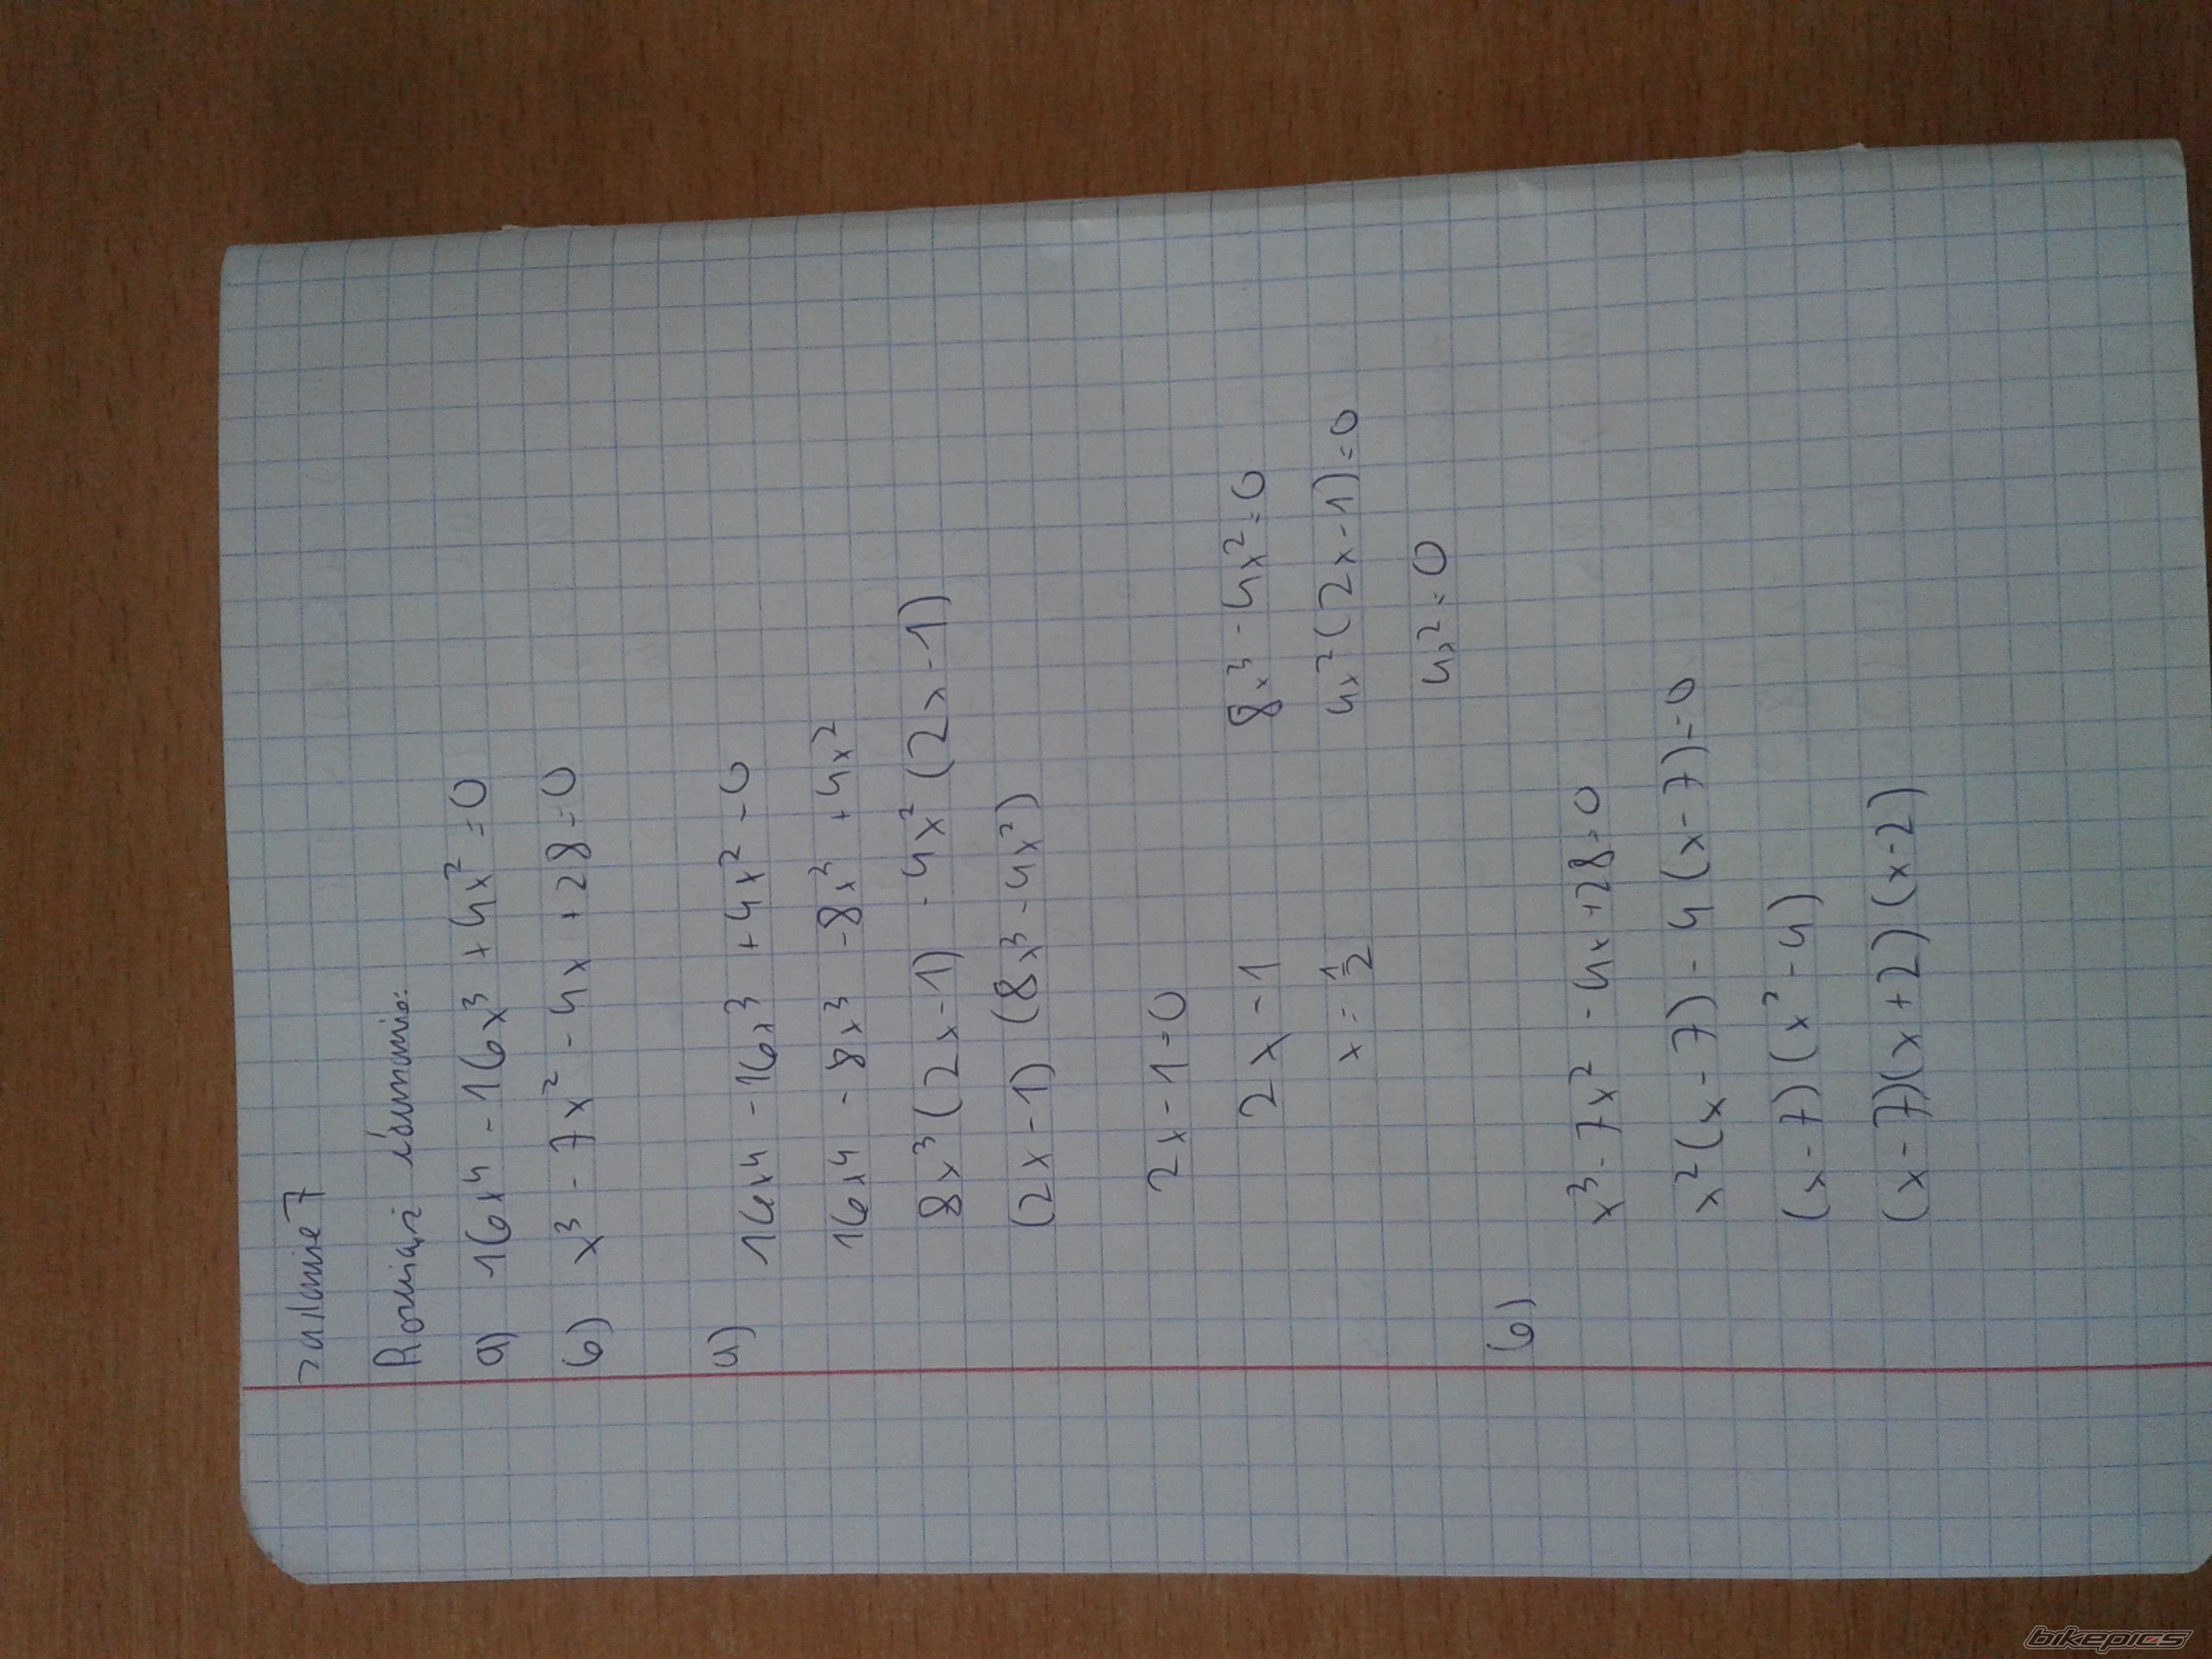 zadanie 7
Rozwiąż równania:
a) 16x⁴ - 16x³ + 4x² = 0
b) x³ - 7x² - 4x + 28 = 0
a) 16x⁴ - 16x³ + 4x² = 0
16x⁴ - 8x³ - 8x³ + 4x²
8x³ (2x - 1) - 4x² (2x - 1)
(2x - 1) (8x³ - 4x²)
2x - 1 = 0
2x - 1 8x³ - 4x² = 0
x = 1/2 4x² (2x - 1) = 0
4x² = 0
b)
x³ - 7x² - 4x + 28 = 0
x² (x - 7) - 4 (x - 7) = 0
(x - 7) (x² - 4)
(x - 7) (x + 2) (x - 2)
bikepics